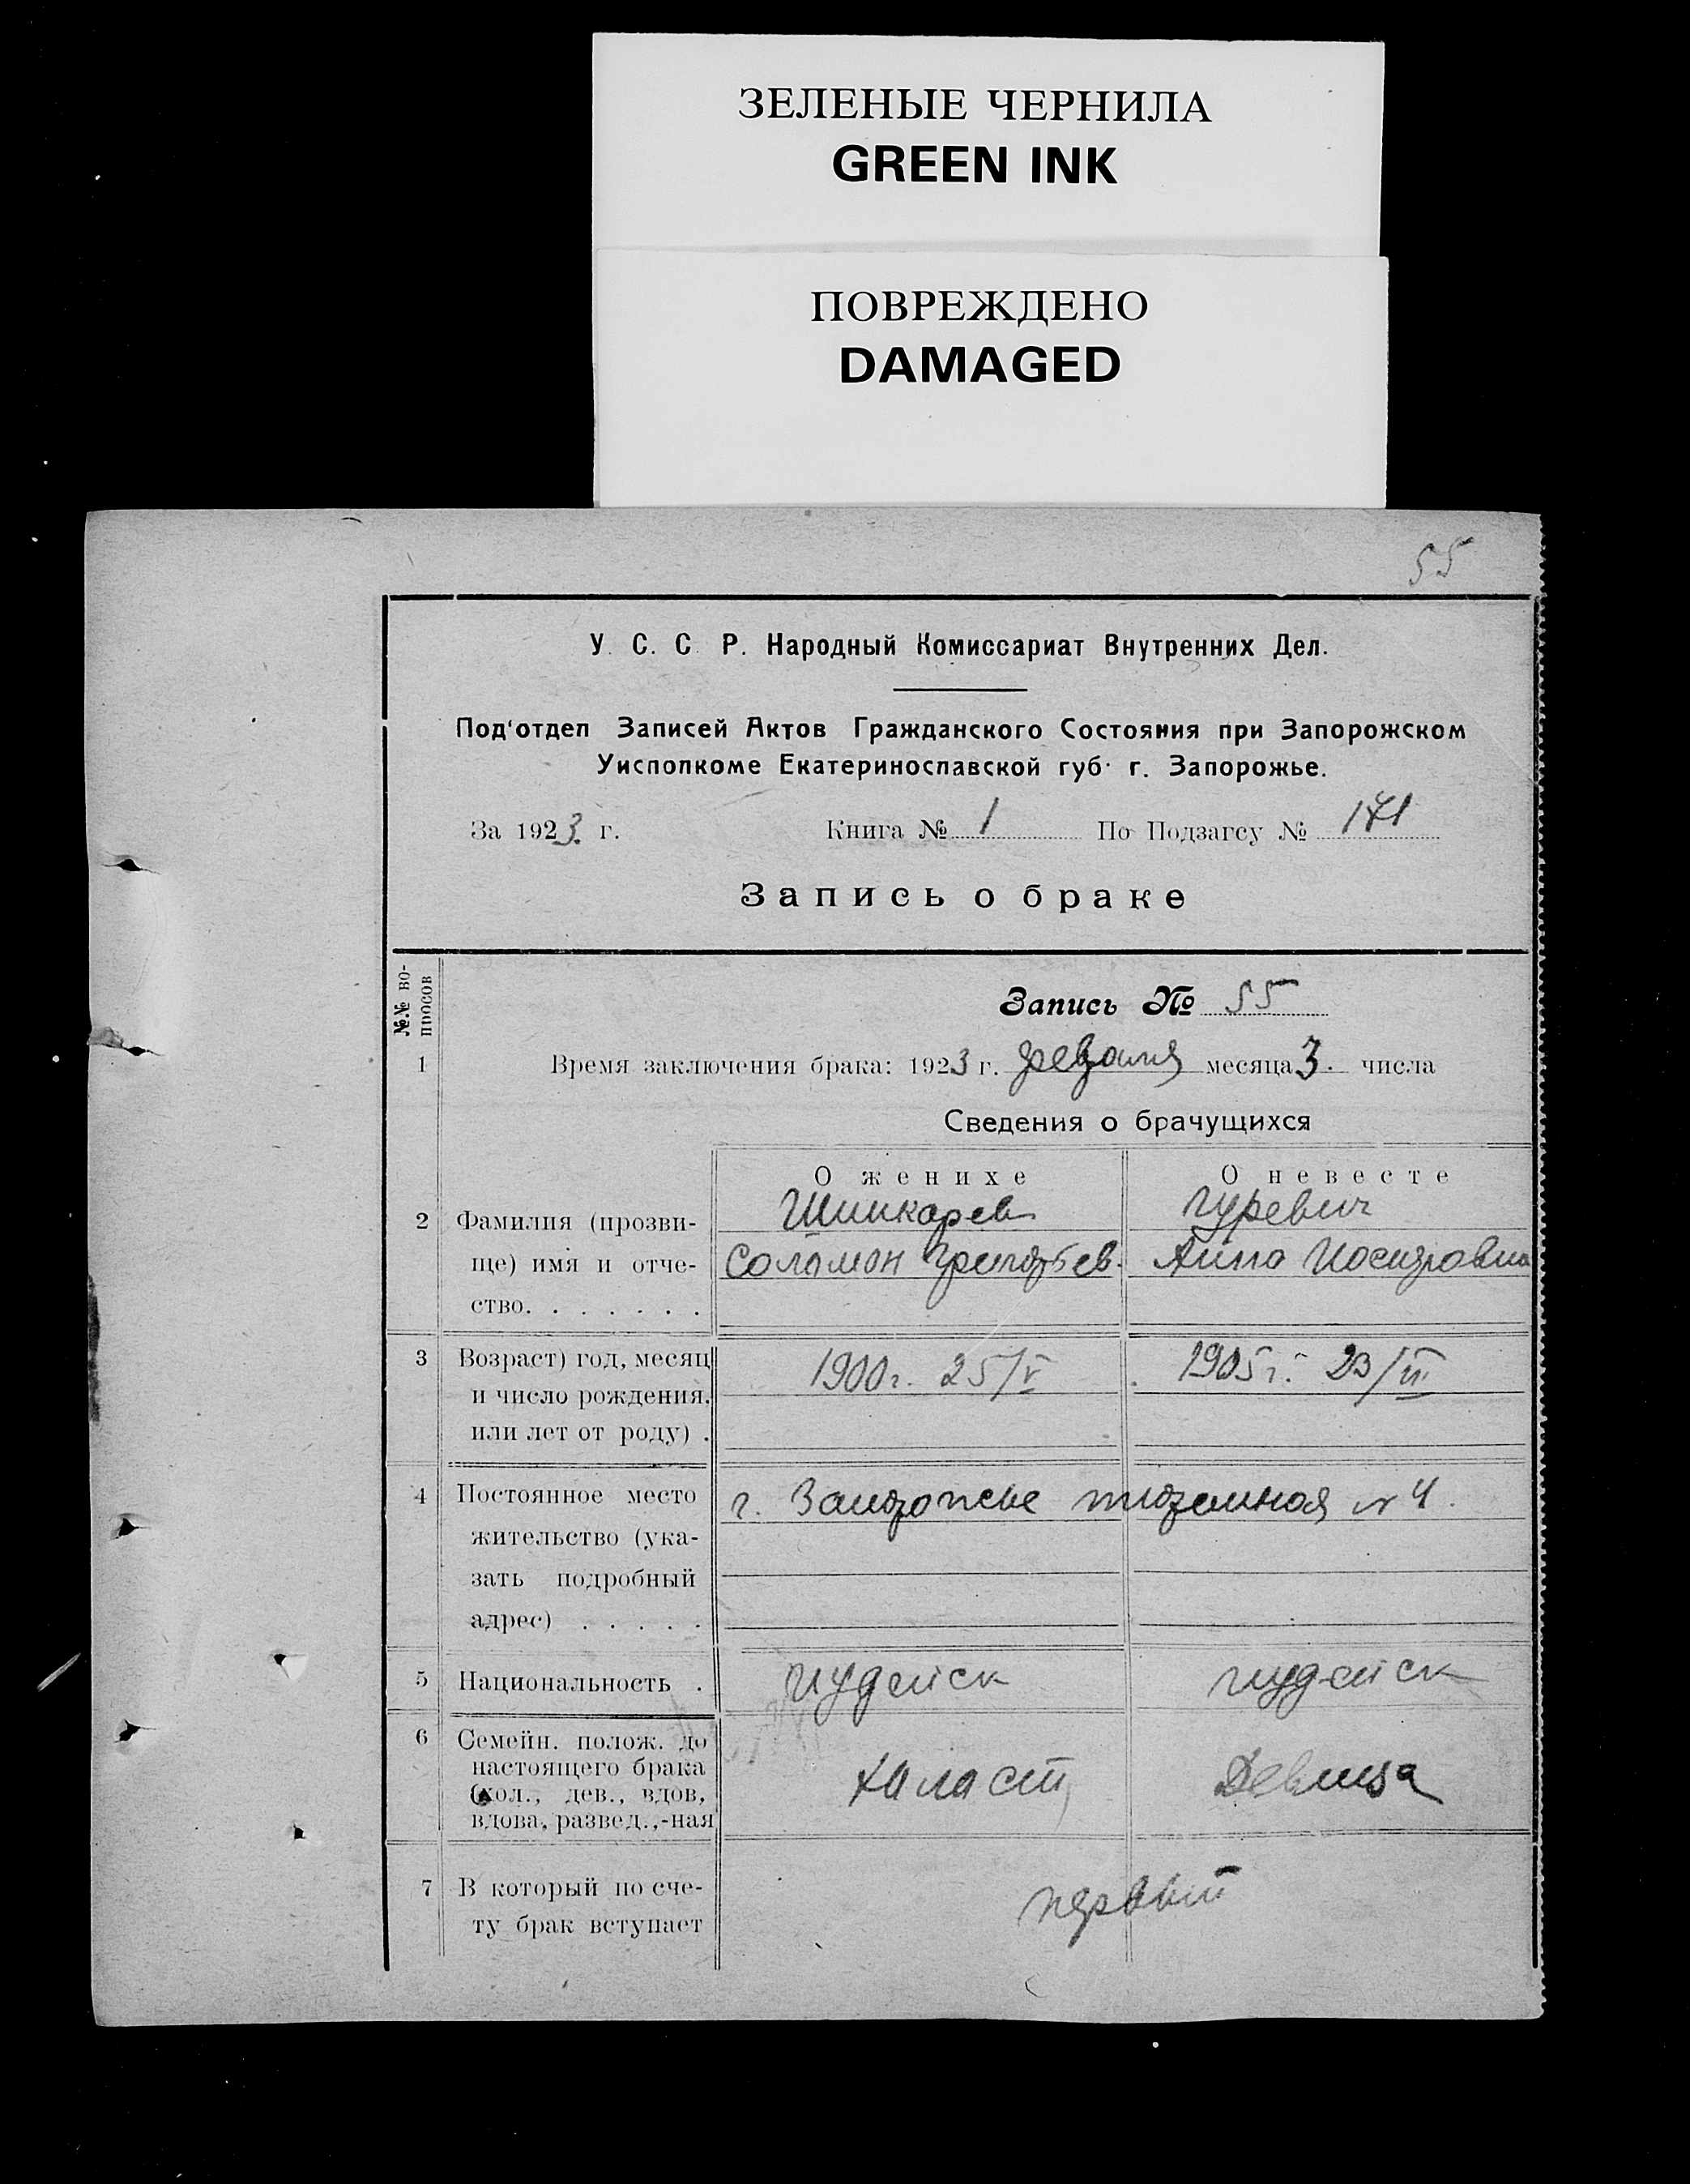 ЗЕЛЕНЫЕ ЧЕРНИЛА
GREEN INK
ПОВРЕЖДЕНО
DAMAGED
55
У. С. С. Р. Народный Комиссариат Внутренних Дел.
Под'отдел Записей Актов Гражданского Состояния при Запорожском
Уисполкоме Екатеринославской губ. г. Запорожье.
За 1923. г. Книга № 1 По Подзагсу № 171
Запись о браке
№№ во-
просов
Запись № 55
1 Время заключения брака: 1923 г. февраля месяца 3. числа
Сведения о брачущихся
О женихе О невесте
2 Фамилия (прозви- Шинкарев Гуревич
ще) имя и отче- Соломон Григорьев. Анна Иосифовна
ство. . . . . . .
3 Возраст) год, месяц 1900 г. 25/V 1905 г. 23/III
и число рождения.
или лет от роду) .
4 Постоянное место г. Запорожье тюремная № 4.
жительство (ука-
зать подробный
адрес) . . . . .
5 Национальность . иудейск иудейск
6 Семейн. полож. до
настоящего брака
(хол., дев., вдов, халаст девица
вдова, развед.,-ная
7 В который по сче- первый
ту брак вступает